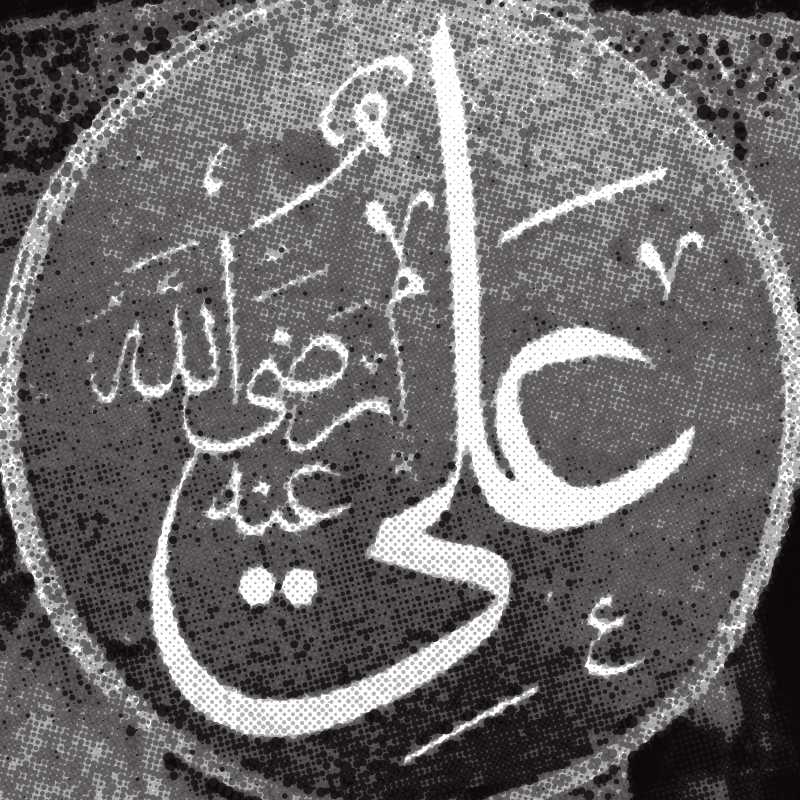 علي
رضي الله
عنه